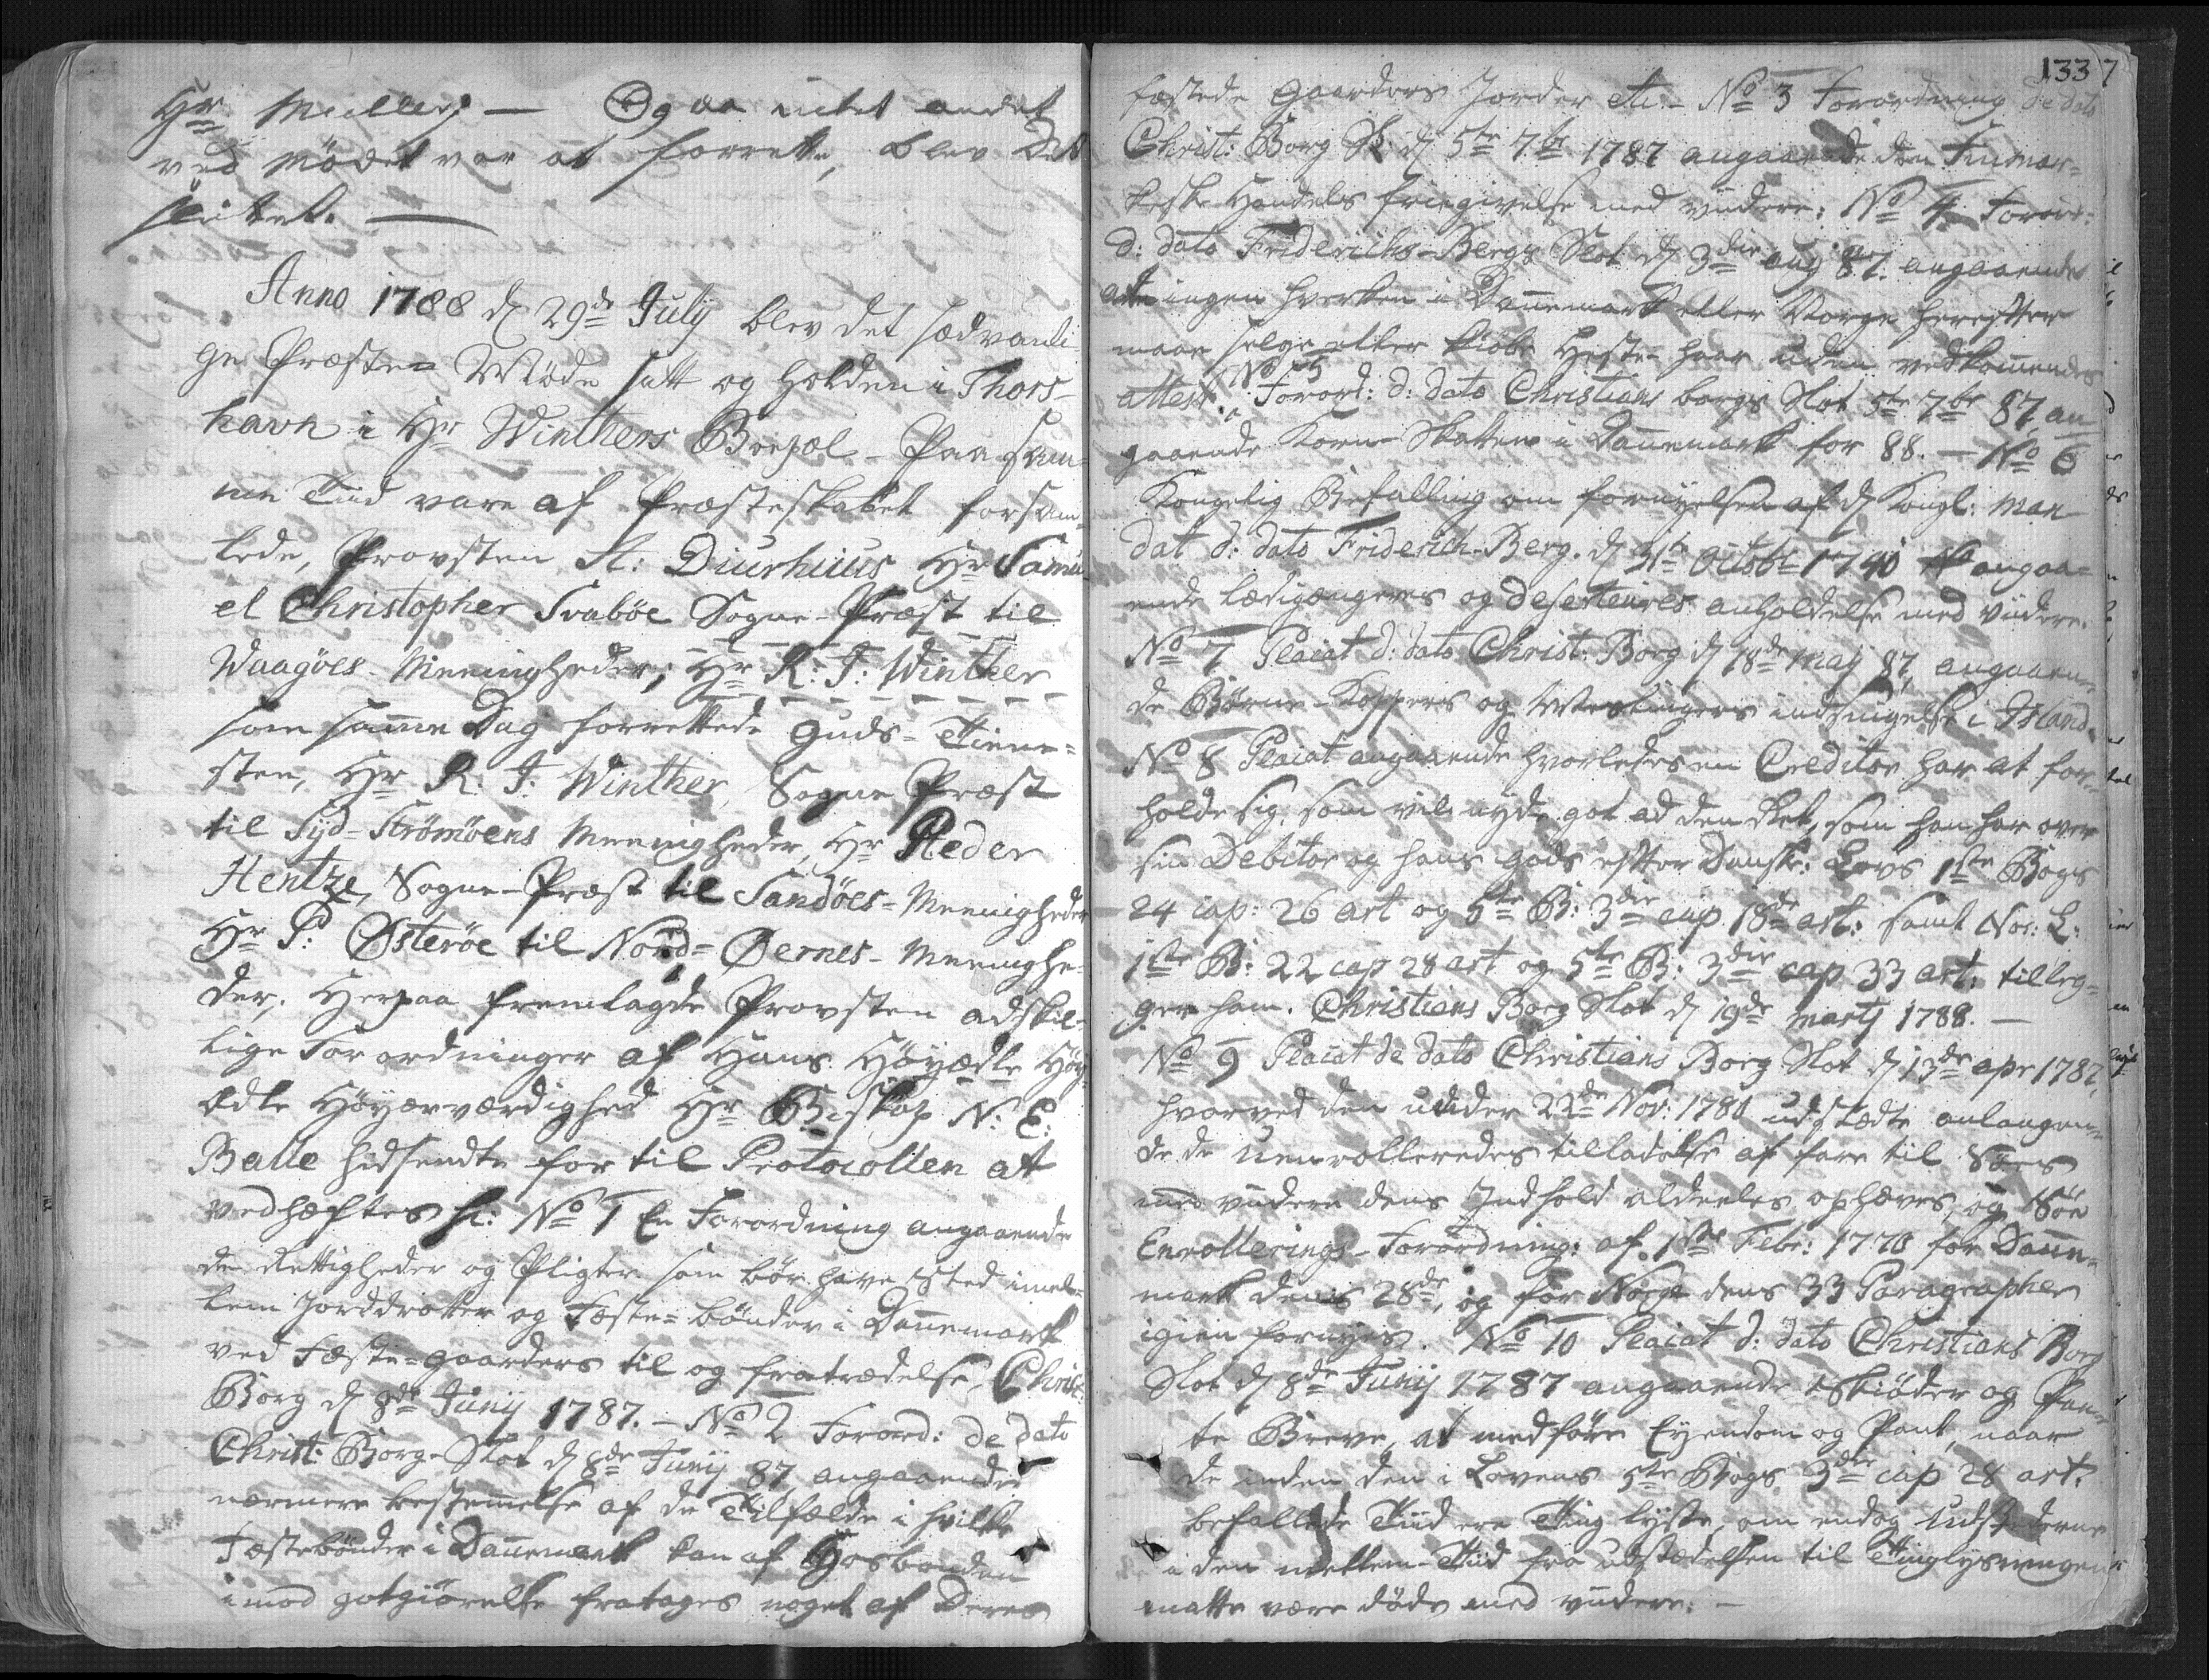 Hr Müller, — Og da intet andet
ved Mødet var at forrette, blev Det
sluttet. —
Anno 1788 d 29de Julij blev det sædvanli-
ge Præste-Møde satt og holden i Thors-
havn i Hr Winthers Boepæl – Paa sam-
me Tiid vare af Præsteskabet forsam-
lede, Provsten St: Diurhuus, Hr Samu-
el Christopher Svabøe Sogne-Præst til
Waagøes-Menigheder, Hr R: J: Winther
som samme Dag forrettede Guds-Tiene-
sten, Hr R: J: Winther, Sogne Præst
til Syd-Strømøens Menigheder, Hr Peder
Hentze, Sogne-Præst til Sandøes-Menigheder
Hr P: Østerøe til Nord-Øernes-Menighe-
der; Herpaa fremlagde Provsten adskil-
lige Forordninger af Hans Høyædle Høy-
ædle Høyærværdighed Hr Biskop N: E:
Balle hidsendte for til Protocollen at
vedhæftes sc: No 1 En Forordning angaaende
de Rettigheder og Pligter som bør have sted imel-
lem Jorddrotter og Fæste-bønder i Dannemark
ved Fæste-gaarders til og fratrædelse, Christ:
Borg d 8de Junij 1787. – No 2 Forord: de dato
Christ: Borg-Slot d 8de Junij 87, angaaende
nærmere bestemmelse af de Tilfælde i hvilke
Fæstebønder i Dannemark kan af Hosbonden
imod gotgiørelse fratages noget af Deres
133 7
fæstede Gaarders Jorder etc. – No 3 Forordning de dato
Christ: Borg Sl: d 5te 7br 1787 angaaende den Finmar-
keske Handels friegivelse med videre; No 4 Foror:
d: dato Friderichs-Bergs Slot d 3die aug 87. angaaende
at ingen hverken i Dannemark eller Norge herefter
maae selge eller kiøbe Heste-haar uden vedkommendes
attest. No 5 Forord: d: dato Christians borgs Slot 5te 7br 87, an
gaaende Korn-Skatten i Dannemark for 88. – No 6
Kongelig Befalling om fornyelsen af d Kongl: Man
dat d: dato Friderich-Berg. d 31te Octobr 1740 angaa-
ende Lædigængeres og Deserteures anholdelse med videre.
No 7 Placat d: dato Christ: Borg d 18de Maij 87, angaaen-
de Børne-Koppers og Meslingers indsnigelse i Island.
No 8 Placat angaaende hvorledes en Creditor har at for-
holde sig, som vil nyde got ad den Ret, som han har over
sin Debitor og hans gods efter Danske: Lovs 1ste Bogs
24 cap: 26 art og 5te B: 3die cap 18de art: samt Nor: L:
1ste B: 22 cap 28 art og 5te B: 3die cap 33 art: tilleg-
ger ham. Christians Borg Slot d 19de Martj 1788. —
No 9 Placat de dato Christians Borg Slot d 13de apr 1787,
hvorved den under 22de Nov: 1780 udstædte anlangen-
de de uenrolleredes tilladelse af fare til Søes
med videre dens Indhold aldeeles ophæves, og Søe
Enrollerings-Forordning: af 1ste Febr: 1770 for Dann-
mark dens 28de, og for Norge dens 33 Paragrapher
igien fornyes. No 10 Placat d: dato Christians Borg
Slot d 8de Junij 1787 angaaende Skiøder og Pan-
te Breve, at medføre Eyendom og Pant, naar
de inden den i Lovens 5te Bogs 3die cap 28 art:
befallede Tiid ere Ting lyste, om endog Udstederne
i den mellem-Tiid fra udstædelsen til Tinglysningen
matte være døde med videre: –